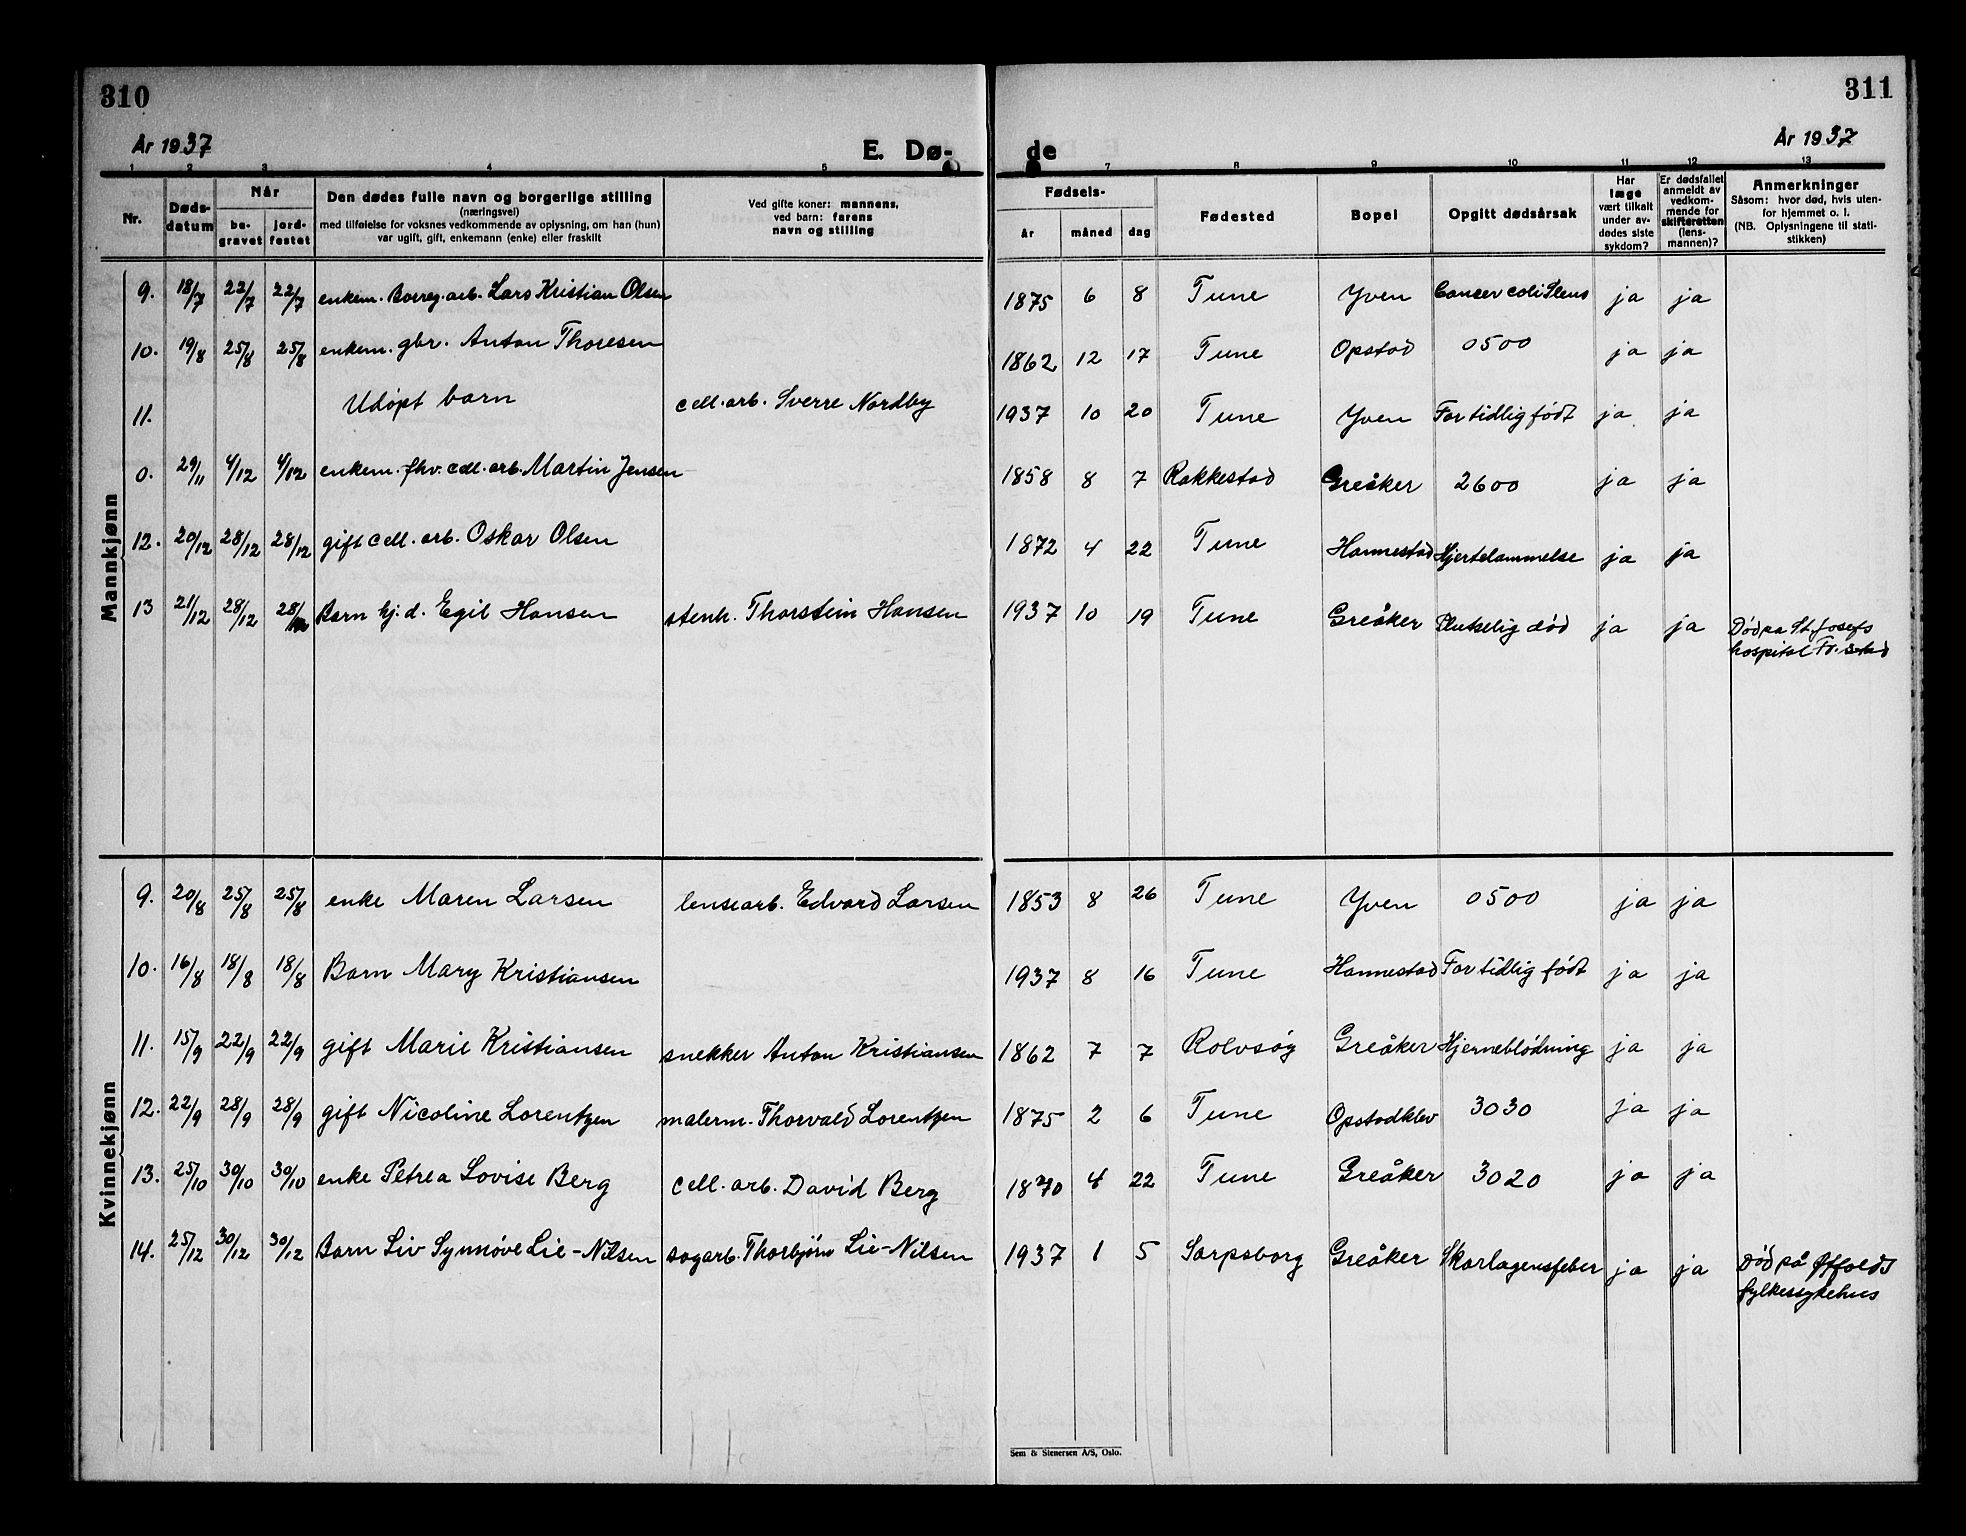 310
311
År 1937
E. Dø-
de
År 1937
1 2 3 4 5 7 8 9 10 11 12 13
Nr.
Døds-
datum
Når
be-
gravet
jord-
festet
Den dødes fulle navn og borgerlige stilling
(næringsvei)
med tilføielse for voksnes vedkommende av oplysning, om han (hun)
var ugift, gift, enkemann (enke) eller fraskilt
Ved gifte koner: mannens,
ved barn: farens
navn og stilling
Fødsels-
år måned dag
Fødested
Bopel
Opgitt dødsårsak
Har
læge
vært tilkalt
under av-
dødes siste
sykdom?
Er dødsfallet
anmeldt av
vedkom-
mende for
skifteretten
(lens-
mannen)?
Anmerkninger
Såsom: hvor død, hvis uten-
for hjemmet o. l.
(NB. Oplysningene til stati-
stikken)
Mannkjønn
9. 18/7 22/7 22/7 enkem. Borreg. arb. Lars Kristian Olsen 1875 6 8 Tune Yven Cancer coli ja ja
10. 19/8 25/8 25/8 enkem. gbr. Anton Thoresen 1862 12 17 Tune Opstad 0500 ja ja
11. Udøpt barn cell. arb. Sverre Nordby 1937 10 20 Tune Yven For tidlig født ja ja
0. 29/11 4/12 4/12 enkem. fhv. cell. arb. Martin Jensen 1858 8 7 Rakkestad Greåker 2600 ja ja
12. 20/12 28/12 28/12 gift cell. arb. Oskar Olsen 1872 4 22 Tune Hannestad Hjertelammelse ja ja
13 21/12 28/12 28/12 Barn hj. d. Egil Hansen stenh. Thorstein Hansen 1937 10 19 Tune Greåker Plutselig død ja ja Død pa St. Josefs
hospital Fr. stad
Kvinnekjønn
9. 20/8 25/8 25/8 enke Maren Larsen lensearb. Edvard Larsen 1853 8 26 Tune Yven 0500 ja ja
10. 16/8 18/8 18/8 Barn Mary Kristiansen 1937 8 16 Tune Hannestad For tidlig født ja ja
11. 15/9 22/9 22/9 gift Marie Kristiansen snekker Anton Kristiansen 1862 7 7 Rolvsøy Greåker Hjerneblödning ja ja
12. 22/9 28/9 28/9 gift Nicoline Lorentzen malerm. Thorvald Lorentzen 1875 2 6 Tune Opstadklev 3030 ja ja
13. 25/10 30/10 30/10 enke Petrea Lovise Berg cell. arb. David Berg 1870 4 22 Tune Greåker 3020 ja ja
14. 25/12 30/12 30/12 Barn Liv Synnöve Lie-Nilsen sagarb. Thorbjørn Lie-Nilsen 1937 1 5 Sarpsborg Greåker Skarlagensfeber ja ja Død på Østfolds
fylkessykehus
Sem & Stenersen A/S, Oslo.